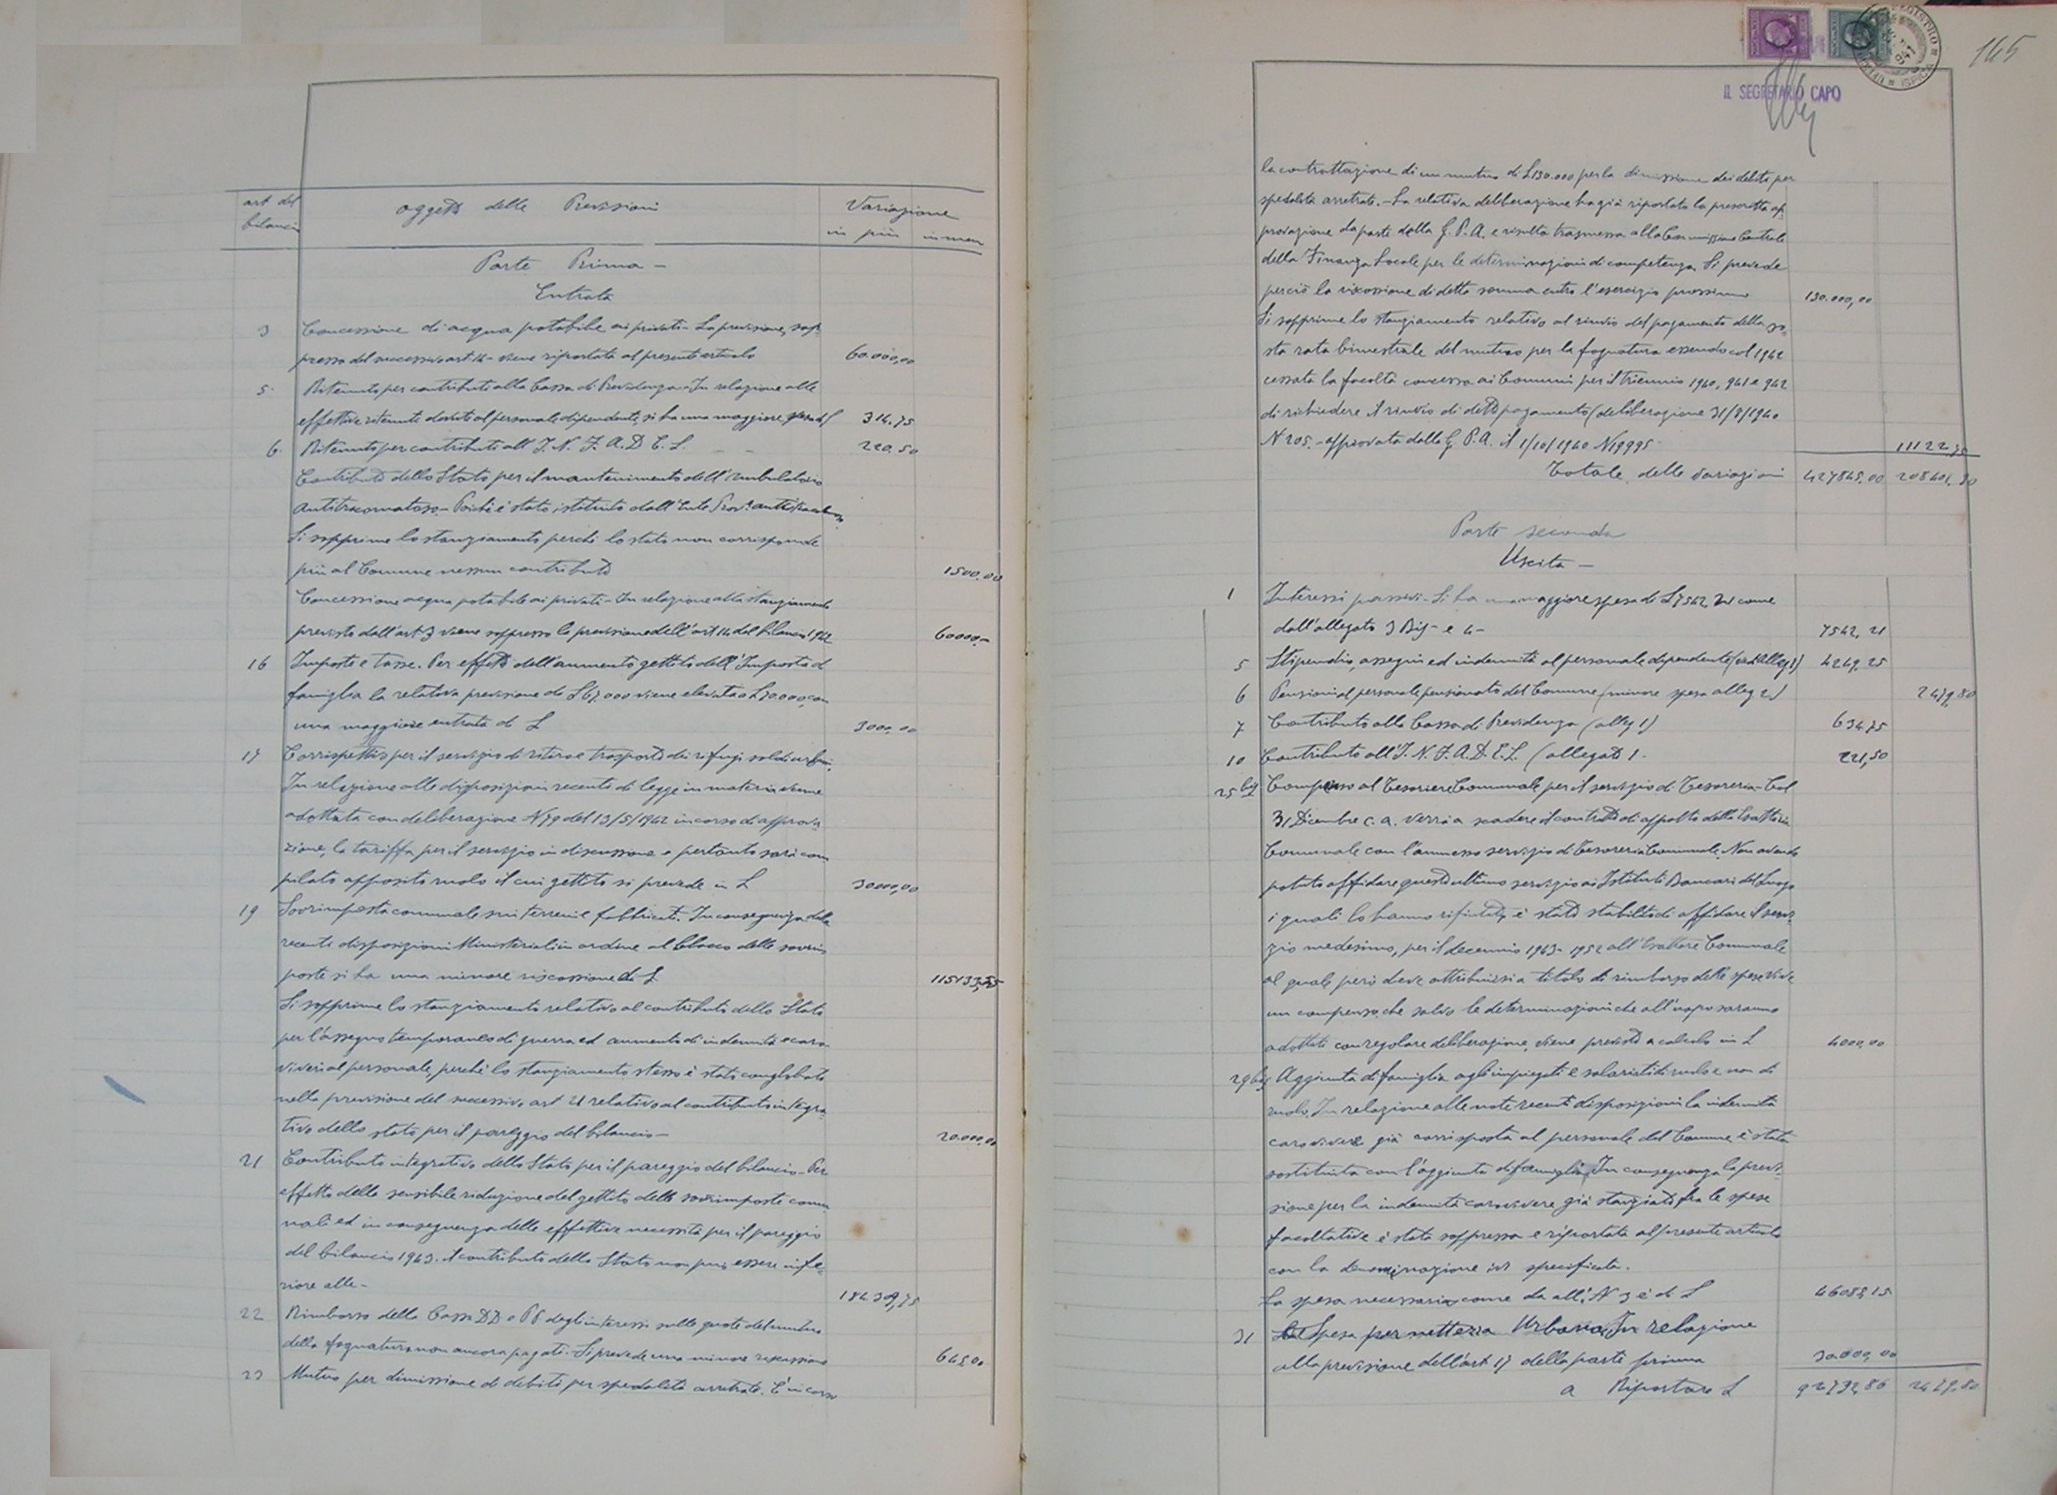 art del
bilancio
oggetto delle Previsioni
Variazione
in più
in meno
Parte Prima -
Entrata
3 Concessione di acqua potabile ai privati - La previsione, sop-
pressa del successivo art. 14 - viene riportata al presente articolo 60.000,00
5 Ritenuto per contributi alla Cassa di Previdenza - In relazione alle
effettive ritenute dovute al personale dipendente, si ha una maggiore 314,75
6 Ritenuto per contributi all'I.N.F.A.D.E.L. 220,50
Contributo dello Stato per il mantenimento dell'Ambulatorio
Antitracomatoso - Poichè è stato istituito dall'Ente Prov.
Si sopprime lo stanziamento perchè lo stato non corrisponde
più al Comune nessun contributo 1500,00
Concessione acqua potabile ai privati - In relazione allo stanziamento
previsto dall'art 3 viene soppressa la previsione dell'art 14 del bilancio 1942 60000,-
16 Imposte e tasse. Per effetto dell'aumento gettito dell'Imposta di
famiglia la relativa previsione da £ 67.000 viene elevata a £ 70.000, con
una maggiore entrata di £ 3000,00
17 Corrispettivo per il servizio di ritiro e trasporto dei rifiuti solidi urbani.
In relazione alle disposizioni recenti di legge in materia viene
adottata con deliberazione N 79 del 13/5/1942 in corso di approva-
zione, la tariffa per il servizio in discussione e pertanto sarà com-
pilato apposito ruolo il cui gettito si prevede in £ 30000,00
19 Sovrimposta comunale sui terreni e fabbricati. In conseguenza delle
recenti disposizioni Ministeriali in ordine al blocco delle sovrim-
poste si ha una minore riscossione di £
Si sopprime lo stanziamento relativo al contributo dello Stato
per l'assegno temporaneo di guerra ed aumento di indennità caro-
viveri al personale, perchè lo stanziamento stesso è stato conglobato
nella previsione del successivo art 21 relativo al contributo integra-
tivo dello stato per il pareggio del bilancio - 20.000,00
21 Contributo integrativo dello Stato per il pareggio del bilancio - Per
effetto della sensibile riduzione del gettito delle sovrimposte comu-
nali ed in conseguenza delle effettive necessità per il pareggio
del bilancio 1943. il contributo dello Stato non può essere infe-
riore alle -
184.309,75
22 Rimborso della Cassa DD e PP degli interessi sulle quote del mutuo
della fognatura non ancora pagati - Si prevede una minore riscossione 645,00
23 Mutuo per dimissione di debiti per spedalità arretrate. E' in corso
165
IL SEGRETARIO CAPO
la contrattazione di un mutuo di £ 130.000 per la dimissione dei debiti per
spedalità arretrate. - La relativa deliberazione ha già riportato la prescritta ap-
provazione da parte della G.P.A. e risulta trasmessa alla Commissione Centrale
della Finanza Locale per le determinazioni di competenza. Si prevede
perciò la riscossione di detta somma entro l'esercizio prossimo 130.000,00
Si sopprime lo stanziamento relativo al rinvio del pagamento della
sta rata bimestrale del mutuo per la fognatura essendo col 1942
cessata la facoltà concessa ai Comuni per il triennio 1940, 941 e 942
di richiedere il rinvio di detto pagamento (deliberazione 31/8/1940
N 205 - approvata dalla G.P.A. il 1/10/1940 N 19995 11122,75
Totale delle variazioni 427845,00 208401,30
Parte seconda
Uscita -
1 Interessi passivi - Si ha una maggiore spesa di £ 7542,21 come
dall'allegato 3 Bis e 4 - 7542,21
5 Stipendio, assegni ed indennità al personale dipendente (ved. alleg 1) 4249,25
6 Pensioni al personale pensionato del Comune (minore spesa alleg 2) 2479,80
7 Contributo alla Cassa di Previdenza (alleg 1) 634,75
10 Contributo all'I.N.F.A.D.E.L. (allegato 1. 221,50
25 bis Compenso al Tesoriere Comunale per il servizio di Tesoreria - Col
31 Dicembre c.a. verrà a scadere il contratto di appalto della Esattoria
Comunale con l'annesso servizio di Tesoreria Comunale. Non avendo
potuto affidare quest'ultimo servizio ai Istituti Bancari del luogo
i quali lo hanno rifiutato, è stato stabilito di affidare il servi-
zio medesimo, per il decennio 1943-1952 all'Esattore Comunale
al quale però deve attribuirsi a titolo di rimborso delle spese vive
un compenso, che salvo le determinazioni che all'uopo saranno
adottate con regolare deliberazione, viene previsto a calcolo in £ 4000,00
29 bis Aggiunta di famiglia agli impiegati e salariati di ruolo e non di
ruolo. In relazione alle note recenti disposizioni la indennità
caroviveri già corrisposta al personale del Comune è stata
sostituita con l'aggiunta di famiglia. In conseguenza la previ-
sione per la indennità caroviveri già stanziata fra le spese
facoltative è stata soppressa e riportata al presente articolo
con la denominazione ivi specificata.
La spesa necessaria, come da all. N 3 è di £ 46085,15
31 Spesa per nettezza Urbana. In relazione
alla previsione dell'art 17 della parte prima 30.000,00
a Riportare £ 92732,86 2479,80